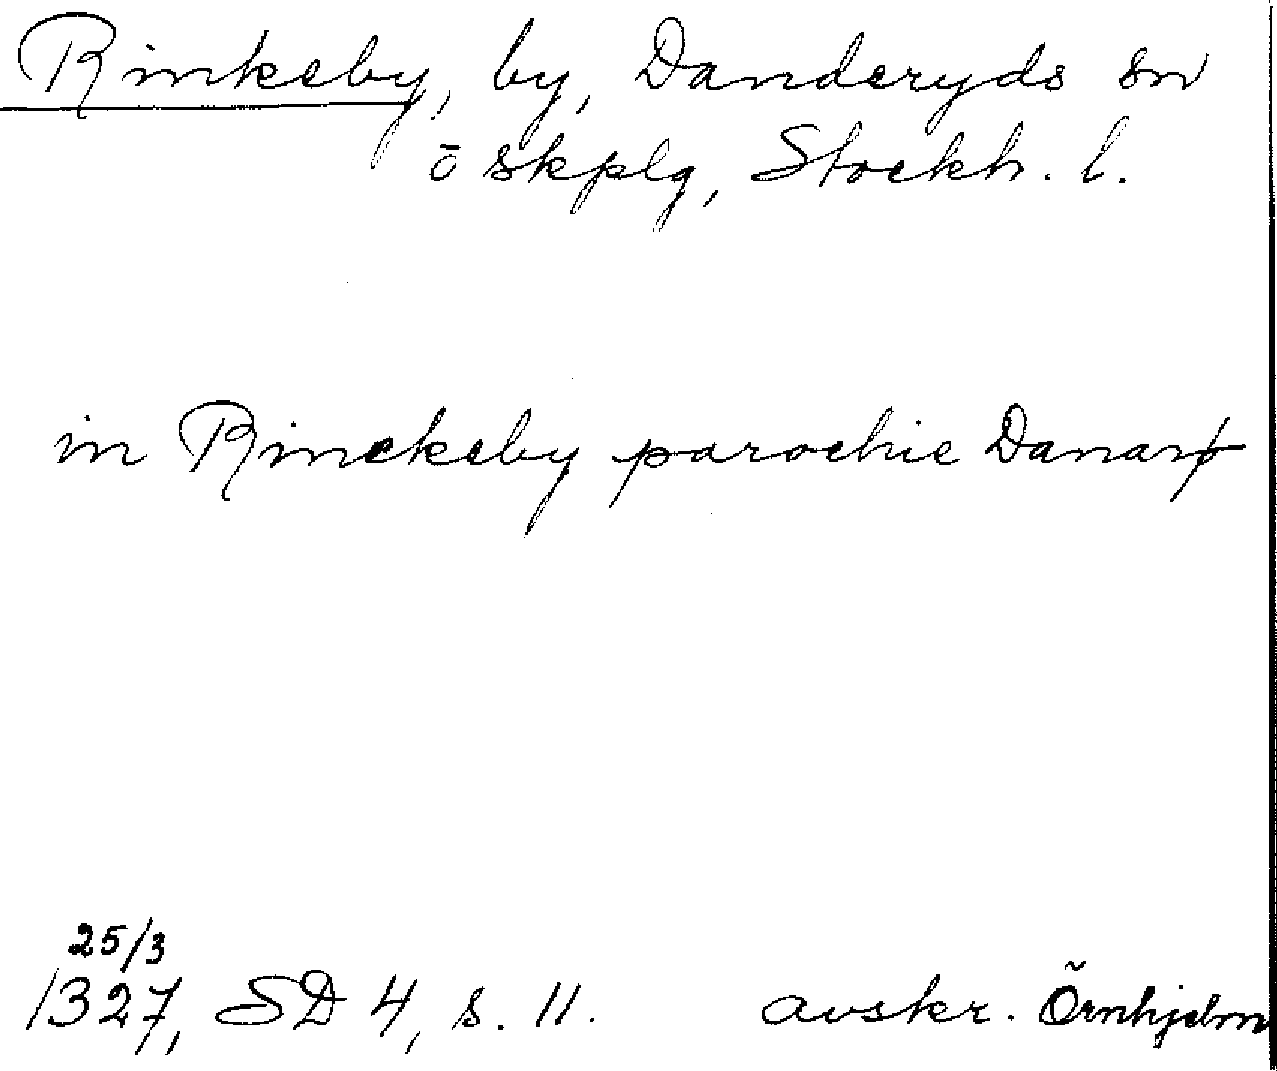 Rinkeby, by, Danderyds sn
ö skplg, Stockh. l.
in Rinckeby parochie Danarp
25/3
1327, SD 4, s. 11. avskr. Örnhjelm